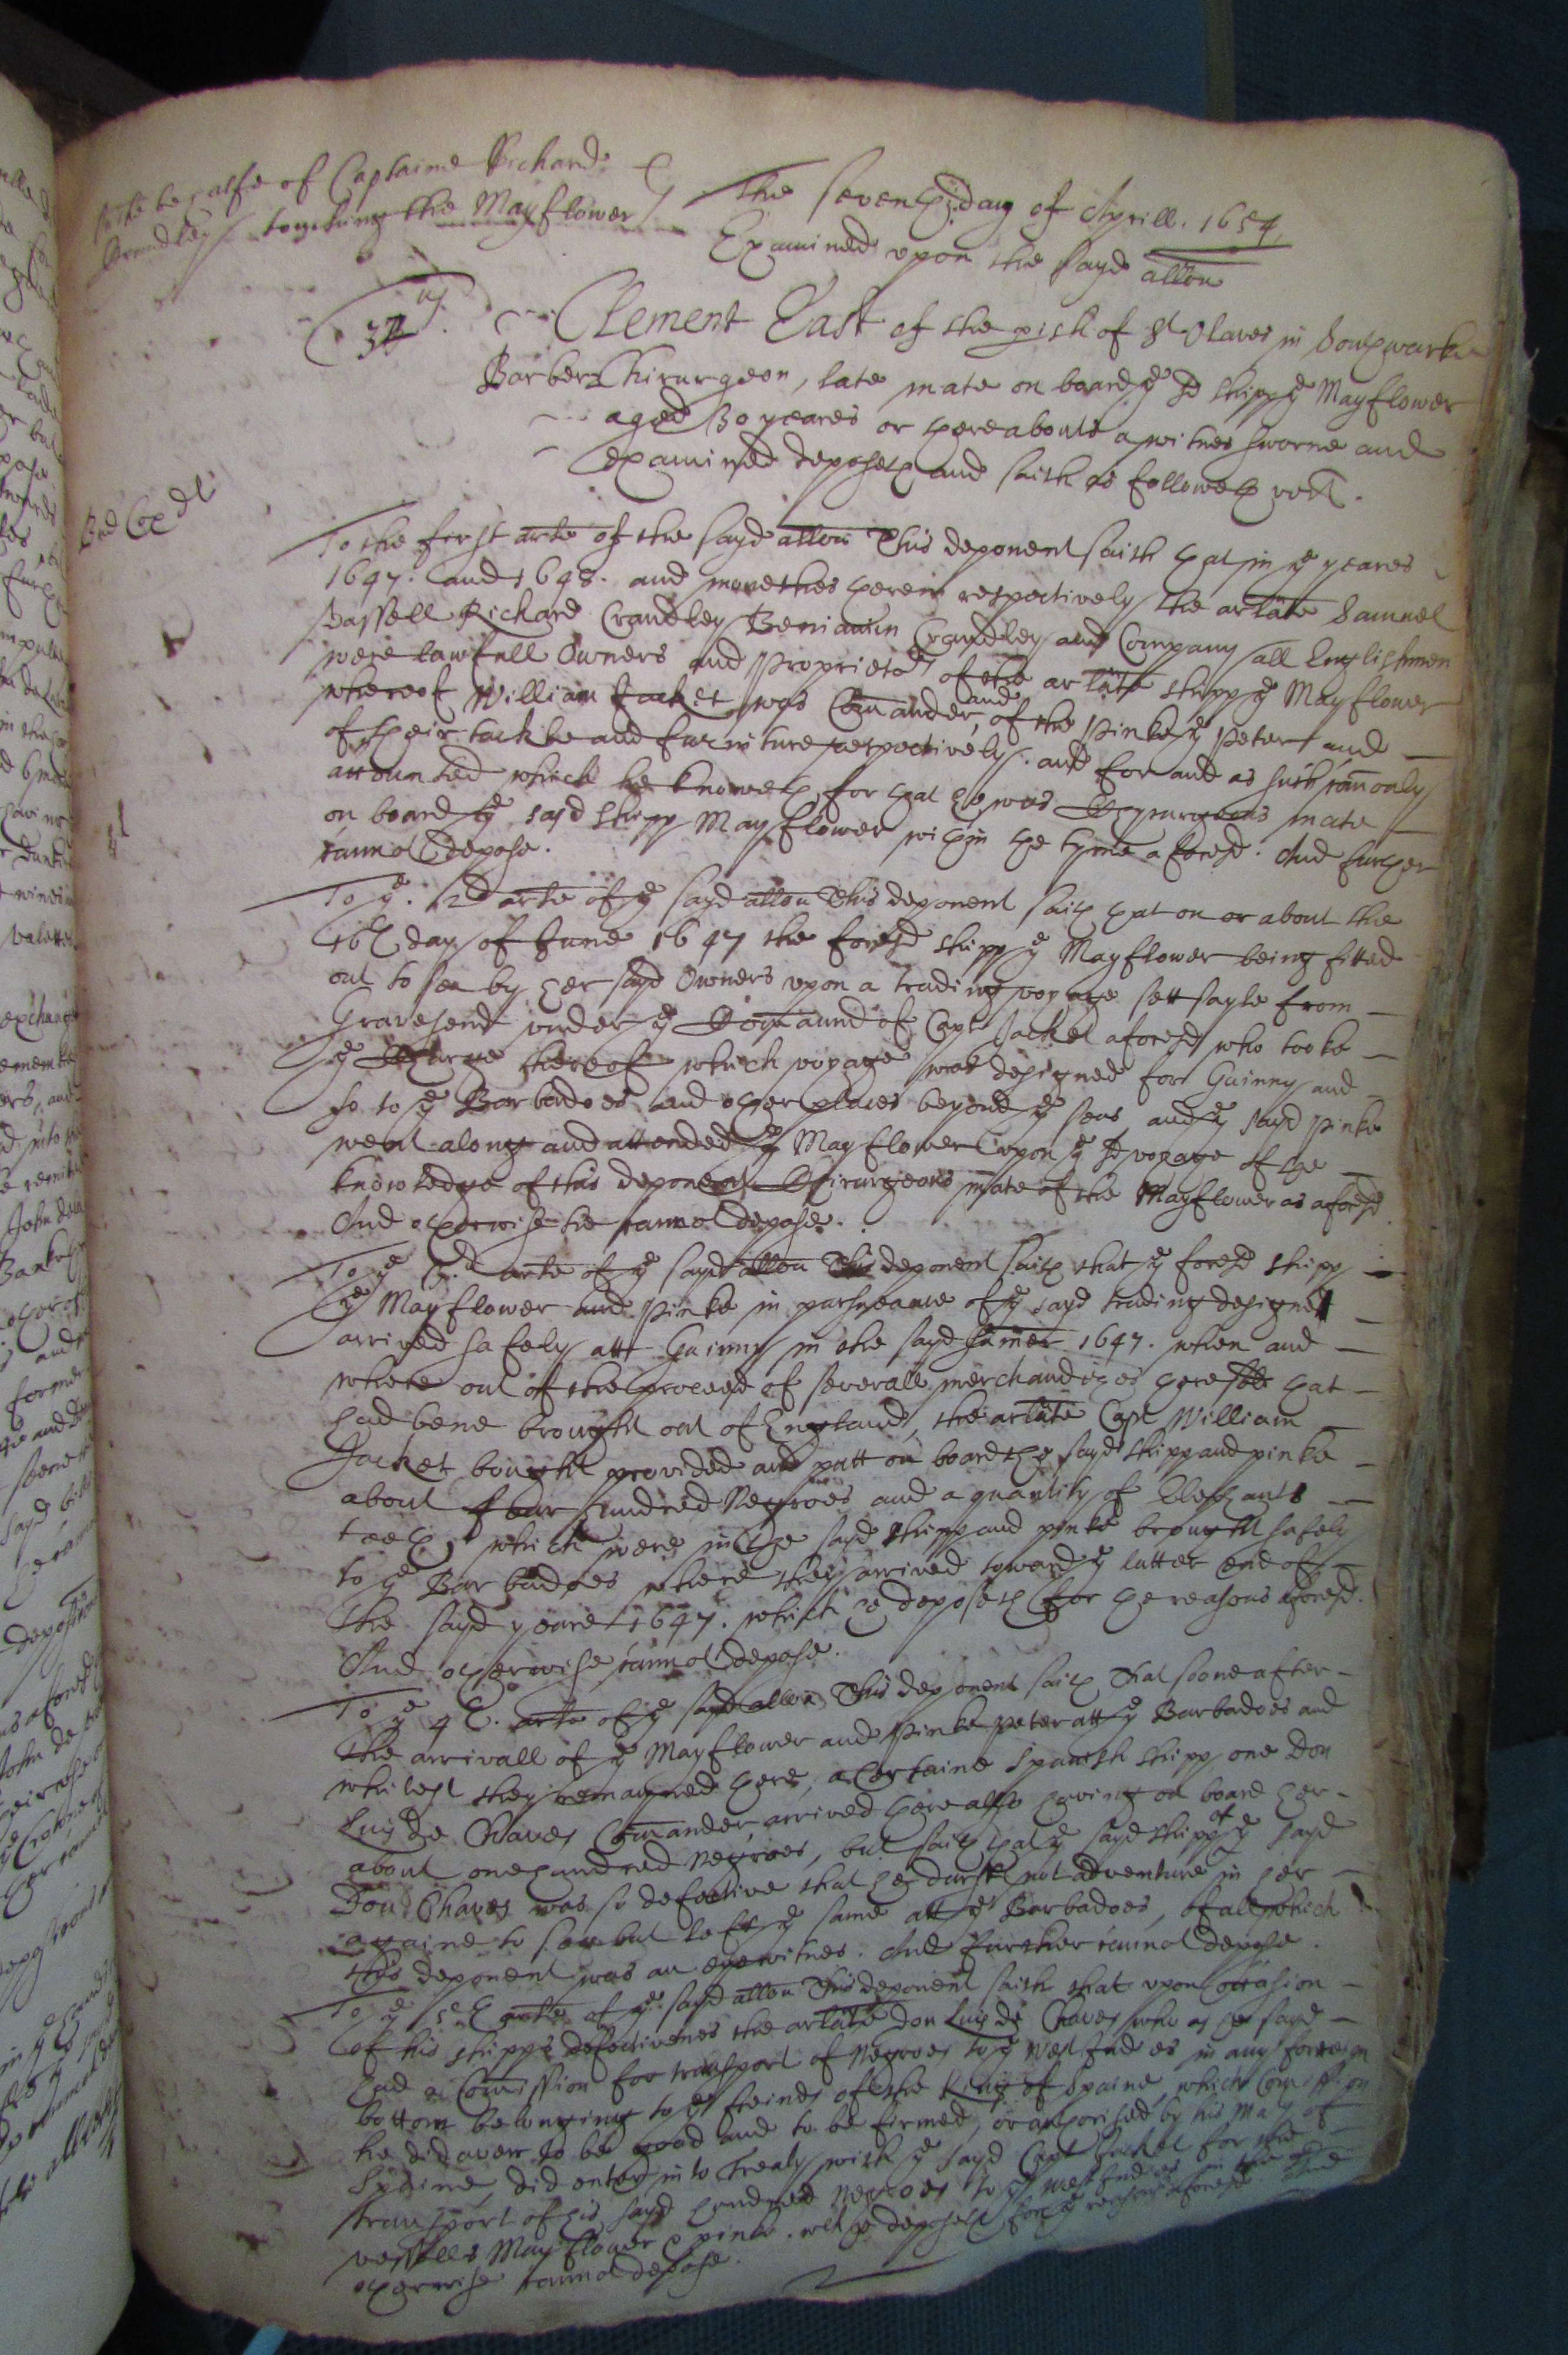 In the behalfe of Captaine Richard
Crandley touching the Mayflower
The seventh day of Aprill. 1654
Examined upon the sayd allon
3us.
Clement East of the pish of St Olaves in Southwarke
Barber Chirurgeon, late mate on board ye sd shipp ye Mayflower
aged 30 yeares or thereabouts a witnes sworne and
examined deposeth and saith as followeth vizt.
To the first arle of the sayd allon This deponent saith that in ye yeares
1647. and 1648. and monethes therein respectively the arlate Samuel
Vassell Richard Crandley Beniamin Crandley and Company all Englishmen
were lawfull Owners and Proprietors of the arlate shipp ye Mayflower
whereof William Jacket was Comander, and of the Pinke ye Peter and
of their tackle and furniture respectively. and for and as such comonly
accounted which he knoweth for that he was Chyrurgeons mate
on board ye sayd shipp Mayflower within the tyme aforesd. And further
cannot depose.
To ye. 2d arle of ye sayd allon This deponent saith that on or about the
16th day of June 1647 the foresd shipp ye Mayflower being fitted
out to sea by her sayd Owners upon a trading voyage sett sayle from
Gravesend under ye Comaund of Capt Jacket aforesd who tooke
ye Charge thereof which voyage was designed for Guinny and
so to ye Barbadoes and other places beyond ye seas, and ye sayd Pinke
went along and attended ye Mayflower upon ye sd voyage of the
knowledge of this deponent Chirurgeons mate of the Mayflower as aforesd
And otherwise he cannot depose.
To ye 3d. arle of ye sayd allon This deponent saith that ye foresd shipp
ye Mayflower and Pinke in pursueance of ye sayd trading designe
arrived safely att Guinny in the sayd sumer 1647. when and
where out of the proceed of severall merchandizes there sett that
had bene brought out of England, the arlate Capt William
Jacket bought provided and putt on board the sayd shipp and pinke
about four hundred Negroes and a quantity of Elephants
teeth, which were in the sayd shipp and pinke brought safely
to ye Barbadoes where they arrived toward ye latter end of
the sayd yeare 1647. which he deposeth for the reasons aforesd.
And otherwise cannot depose.
To ye 4th. arle of ye sayd allon This deponent saith That soone after
the arrivall of ye Mayflower and Pinke Peter att ye Barbadoes and
whilest they remayned there, a Certaine Spanish shipp one Don
Luis de Chaves Comander, arrived there also having on board her
about one hundred Negroes, but saith that ye sayd shipp of ye sayd
Don Chaves was so defective that he durst not adventure in her
againe to sea but left ye same att ye Barbadoes, of all which
this deponent was an eyewitnes. And further cannot depose.
To ye 5th arle of ye sayd allon This deponent saith that upon occasion
of his shipps defectivenes the arlate don Luis de Chaves who as he sayd
had a Comission for transport of Negroes to ye West Indies in any forreign
bottom belonging to ye freinds of the King of Spaine, which Comission
he did averr to be good and to be firmed, or authorised by his Maty of
Spaine, did enter into treaty with ye sayd Capt Jacket for the
transport of his sayd hundred negroes to ye west Indies in the
vessells Mayflower & pinke. wch he deposeth for ye reasons aforesd And
otherwise cannot depose.